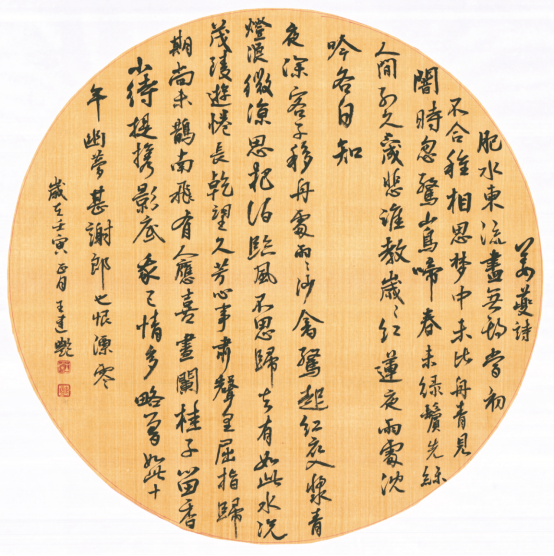 姜夔詩
肥水東流盡無期當初
不合種相思梦中未比丹青見
闇時忽驚山鳥啼春未绿鬢先絲
人間久悲誰教歲〻红蓮夜雨處沈
吟各自知
夜深客子移舟處雨〻沙禽驚起红衣入槳青
燈浪微涼思把酒臨風不思歸去有如此水况
茂陵遊惓長乾望久芳心事肅聲里屈指歸
期尚未鵲南飛有人應喜畫闌桂子留香
小待提携影底〻情多略曾如此十
年幽夢甚謝郎也恨漂零
歲在壬寅正月王建艷